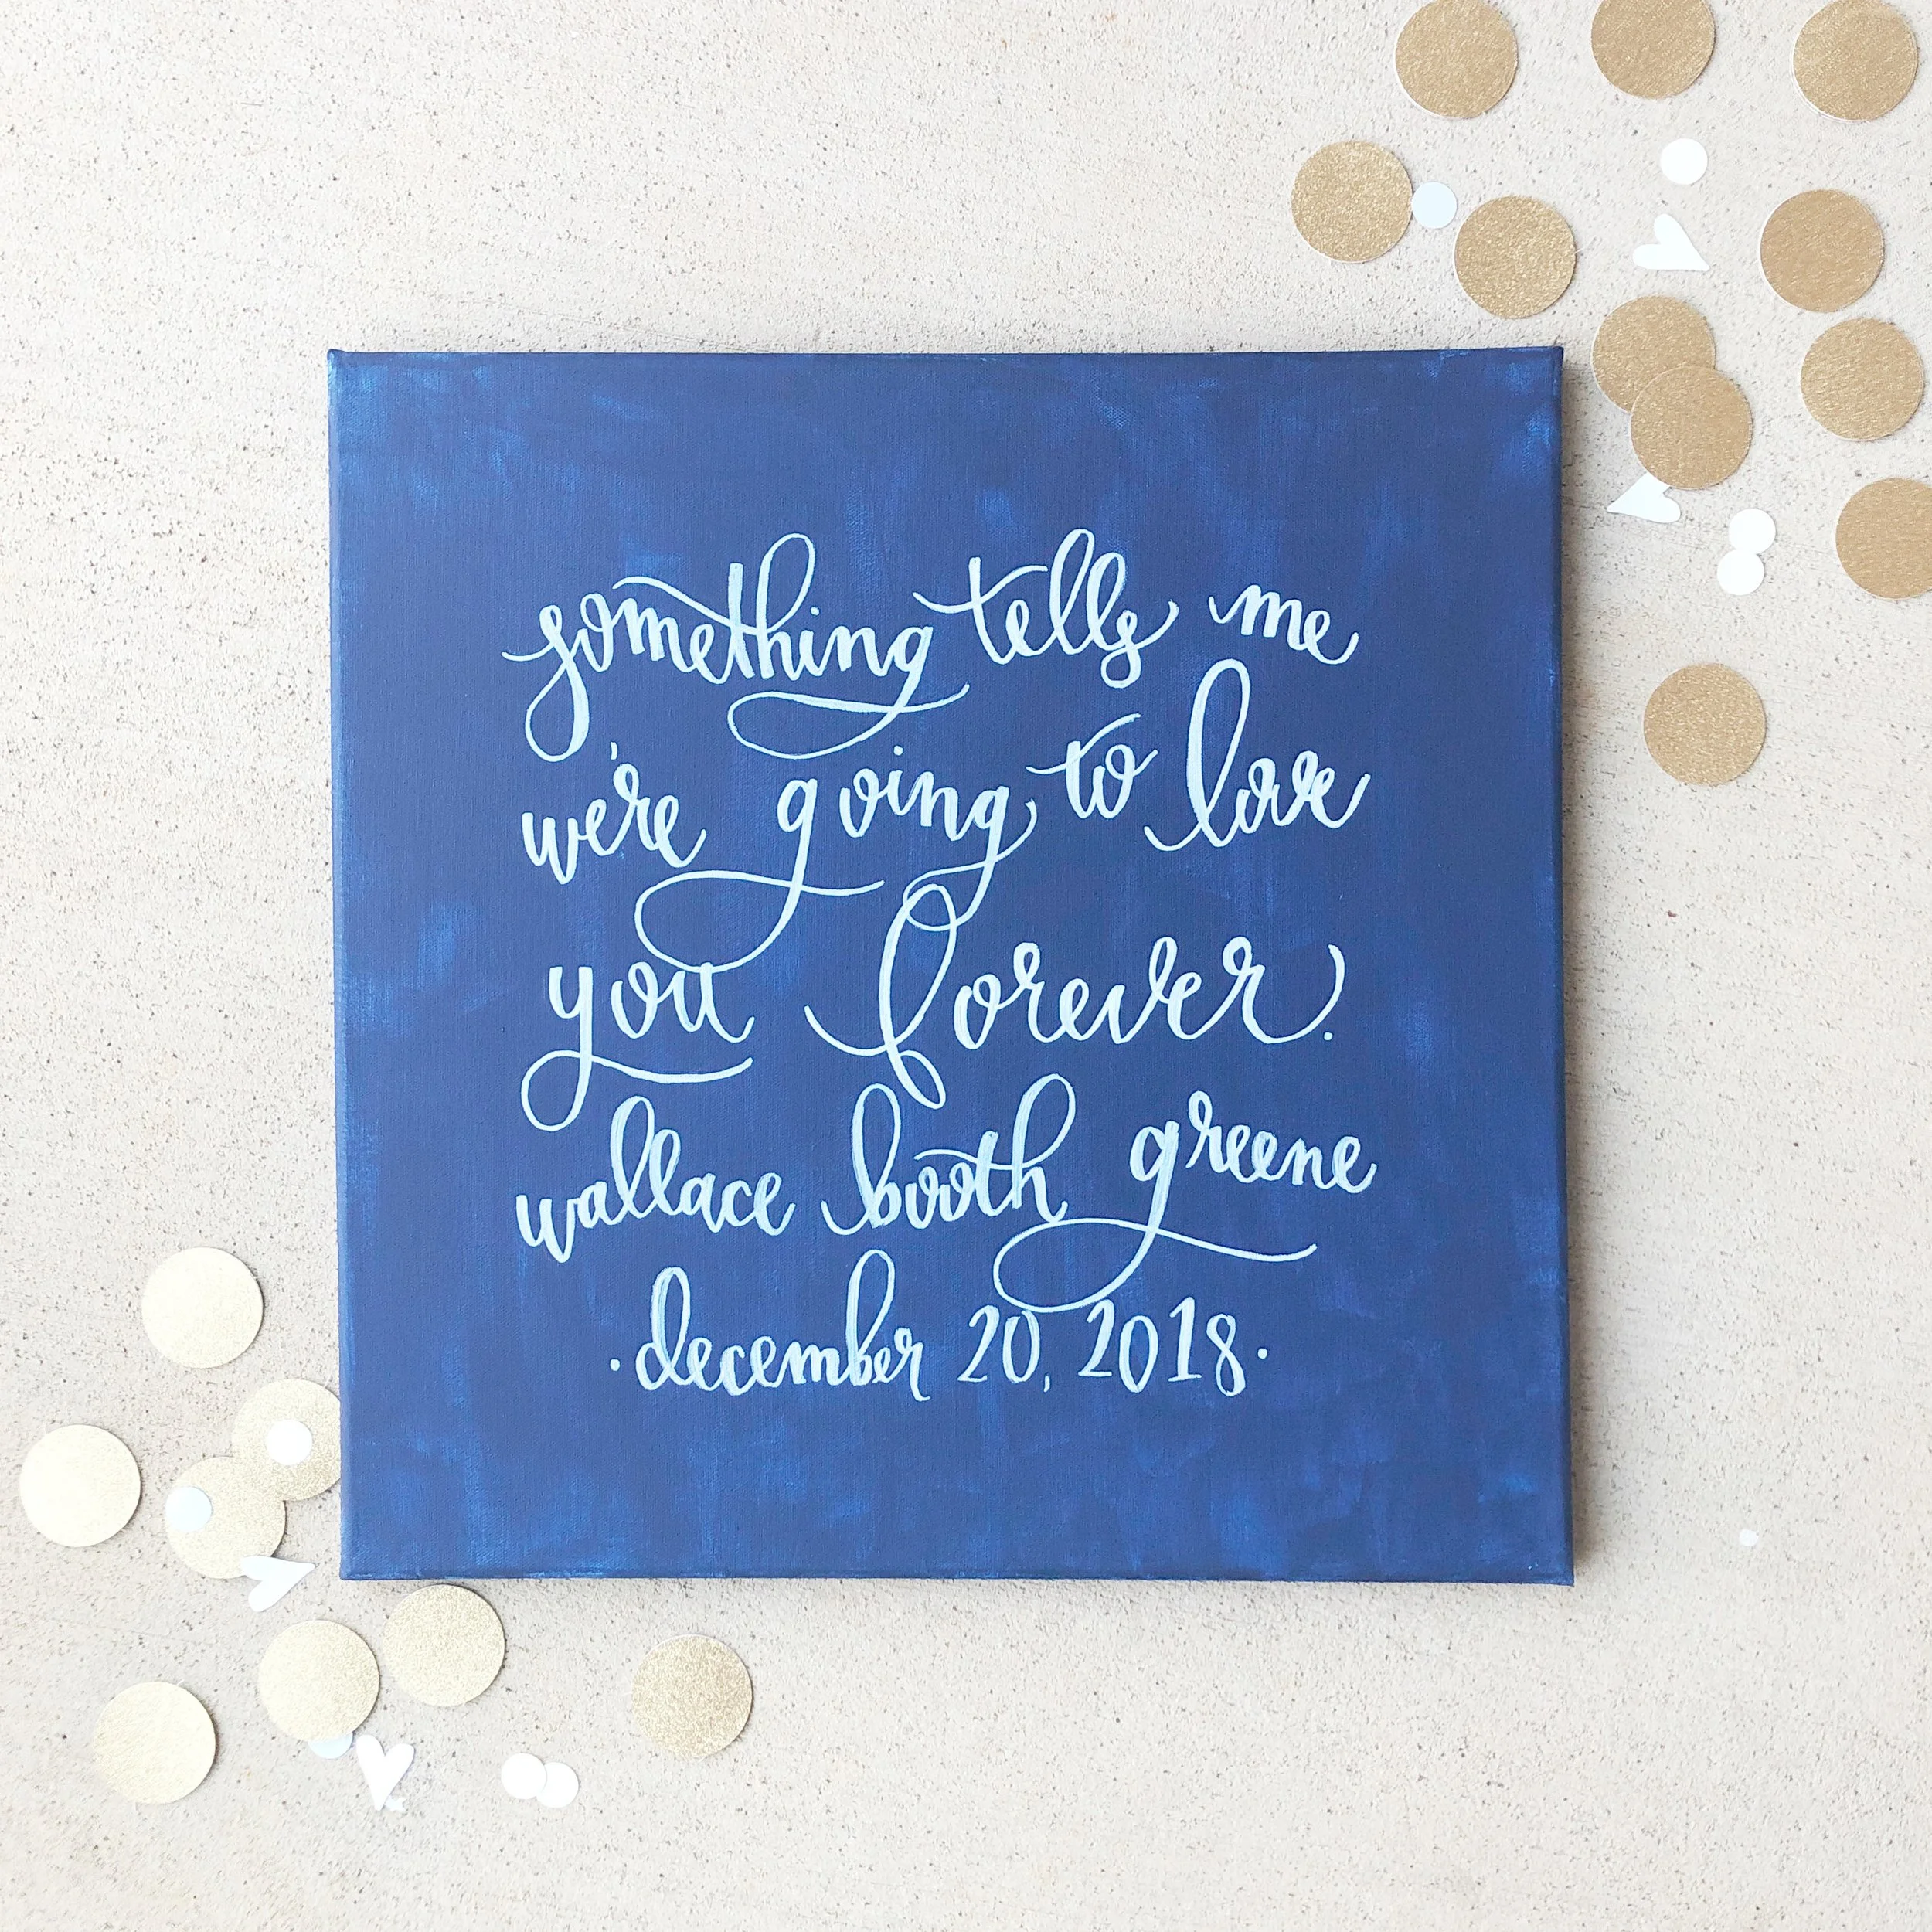 something tells me
we're going to love
you forever.
wallace booth greene
· december 20, 2018 ·